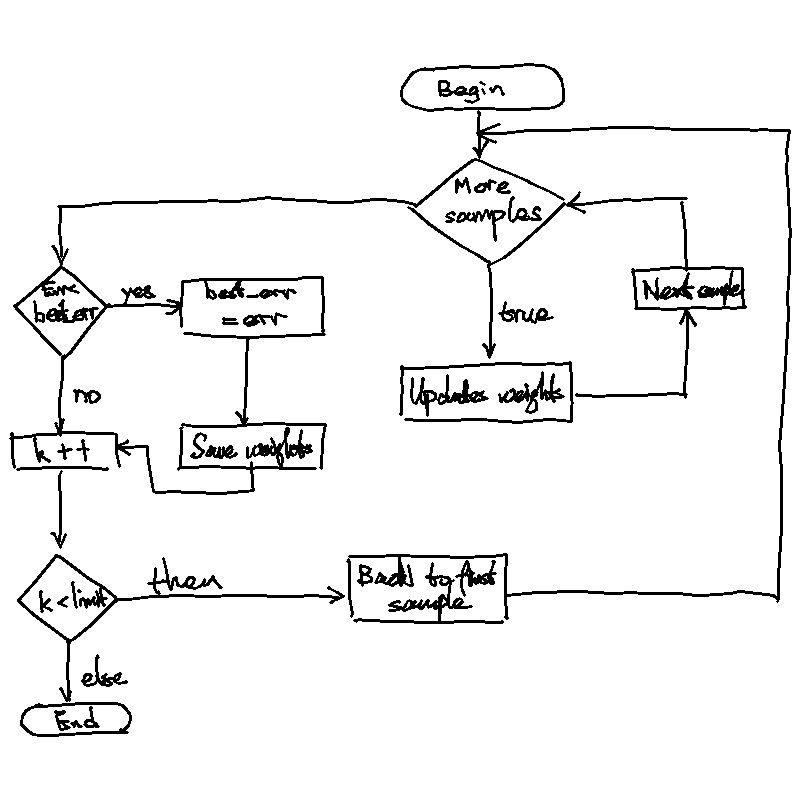 Begin
More
samples
true
Updates weights
Next sample
Err<
best_err
yes
best_err
= err
Save weights
no
k ++
k < limit
then
Back to first
sample
else
End